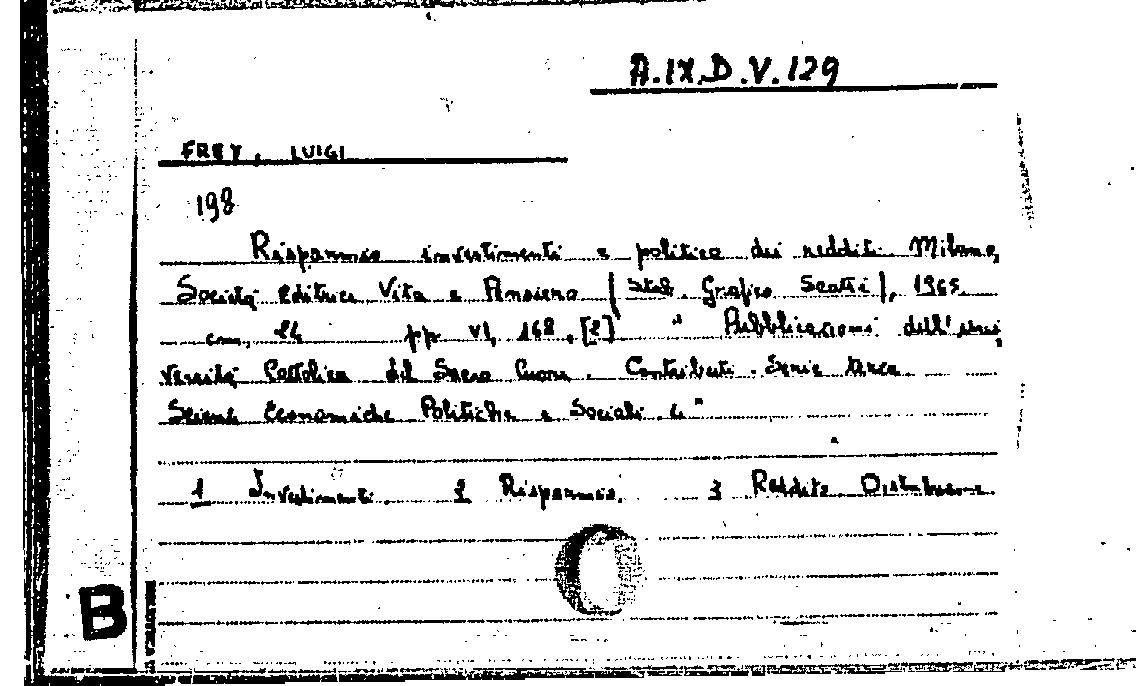 A.IX.D.V.129
FREY, LUIGI
198
Risparmio investimenti e politica dei redditi. Milano,
Società Editrice Vita e Pensiero (Stab. Grafico Scotti), 1965.
cm. 24 pp VI, 168, [2] " Pubblicazioni dell'Uni
versità Cattolica del Sacro Cuore. Contributi. Serie terza
Scienze Economiche Politiche e Sociali. 4"
1 Investimenti. 2 Risparmio. 3 Reddito Distribuzione
B